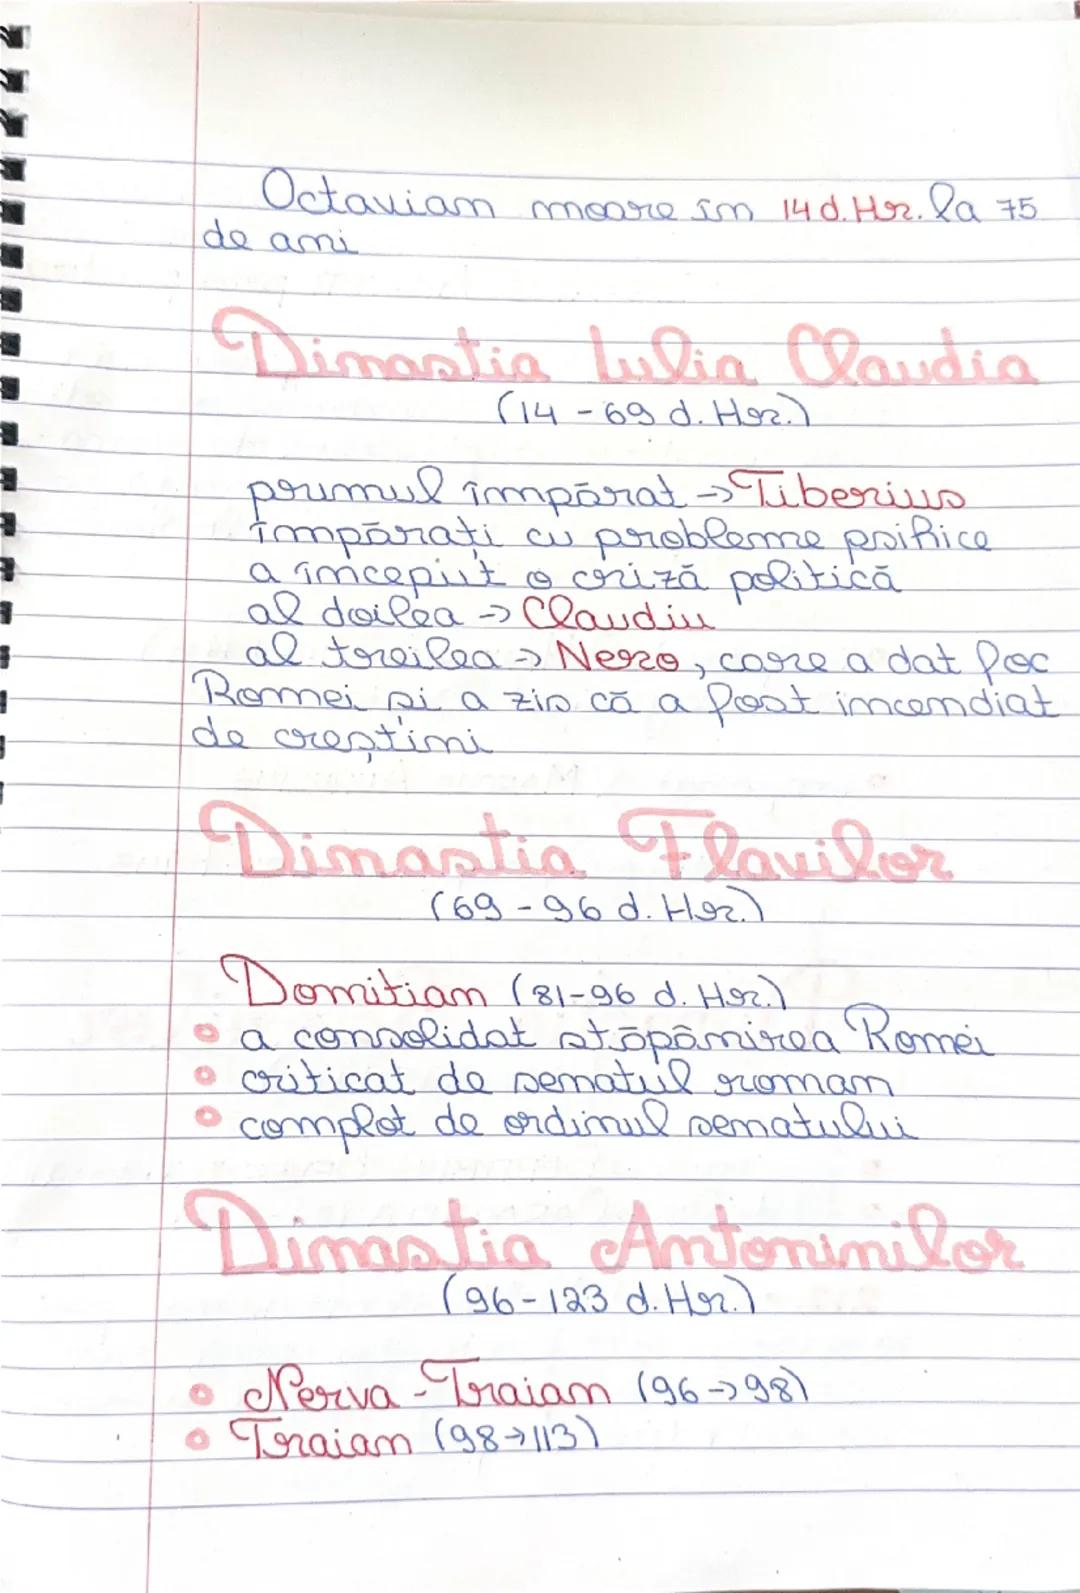 Octavian moare în 14 d. Hr. la 75
de ani
Dinastia Iulia Claudia
(14 - 69 d. Hr.)
primul împărat -> Tiberius
împărați cu probleme psihice
a început o criză politică
al doilea -> Claudiu
al treilea -> Nero, care a dat foc
Romei și a zis că a fost incendiat
de creștini
Dinastia Flavilor
(69 - 96 d. Hr.)
Domitian (81-96 d. Hr.)
• a consolidat stăpânirea Romei
• criticat de senatul roman
• complot de ordinul senatului
Dinastia Antoninilor
(96-123 d. Hr.)
• Nerva - Traian (96->98)
• Traian (98->113)